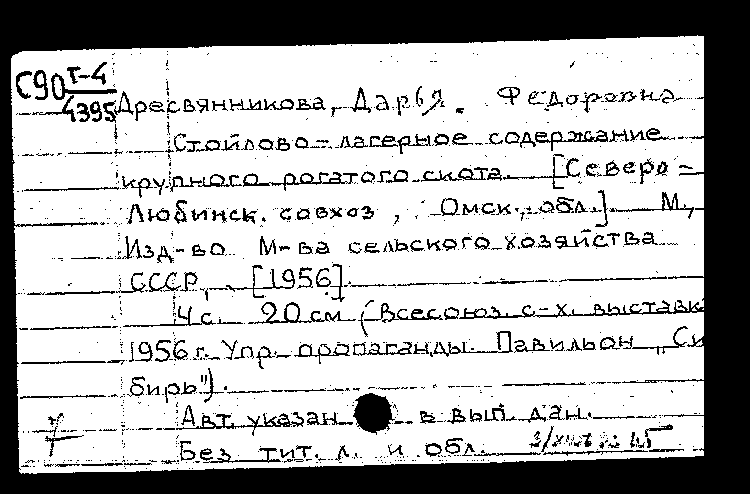 С90 Т-4
4395
Дресвянникова, Дарья Федоровна
Стойлово-лагерное содержание
крупного рогатого скота. [Северо-
Любинск. совхоз, Омск. обл.]. М.,
Изд-во М-ва сельского хозяйства
СССР, [1956].
4 с. 20 см (Всесоюз. с-х. выставк
1956 г. Упр. пропаганды. Павильон „Си
бирь").
Авт. указан в вып. дан.
7
Без тит. л. и обл.